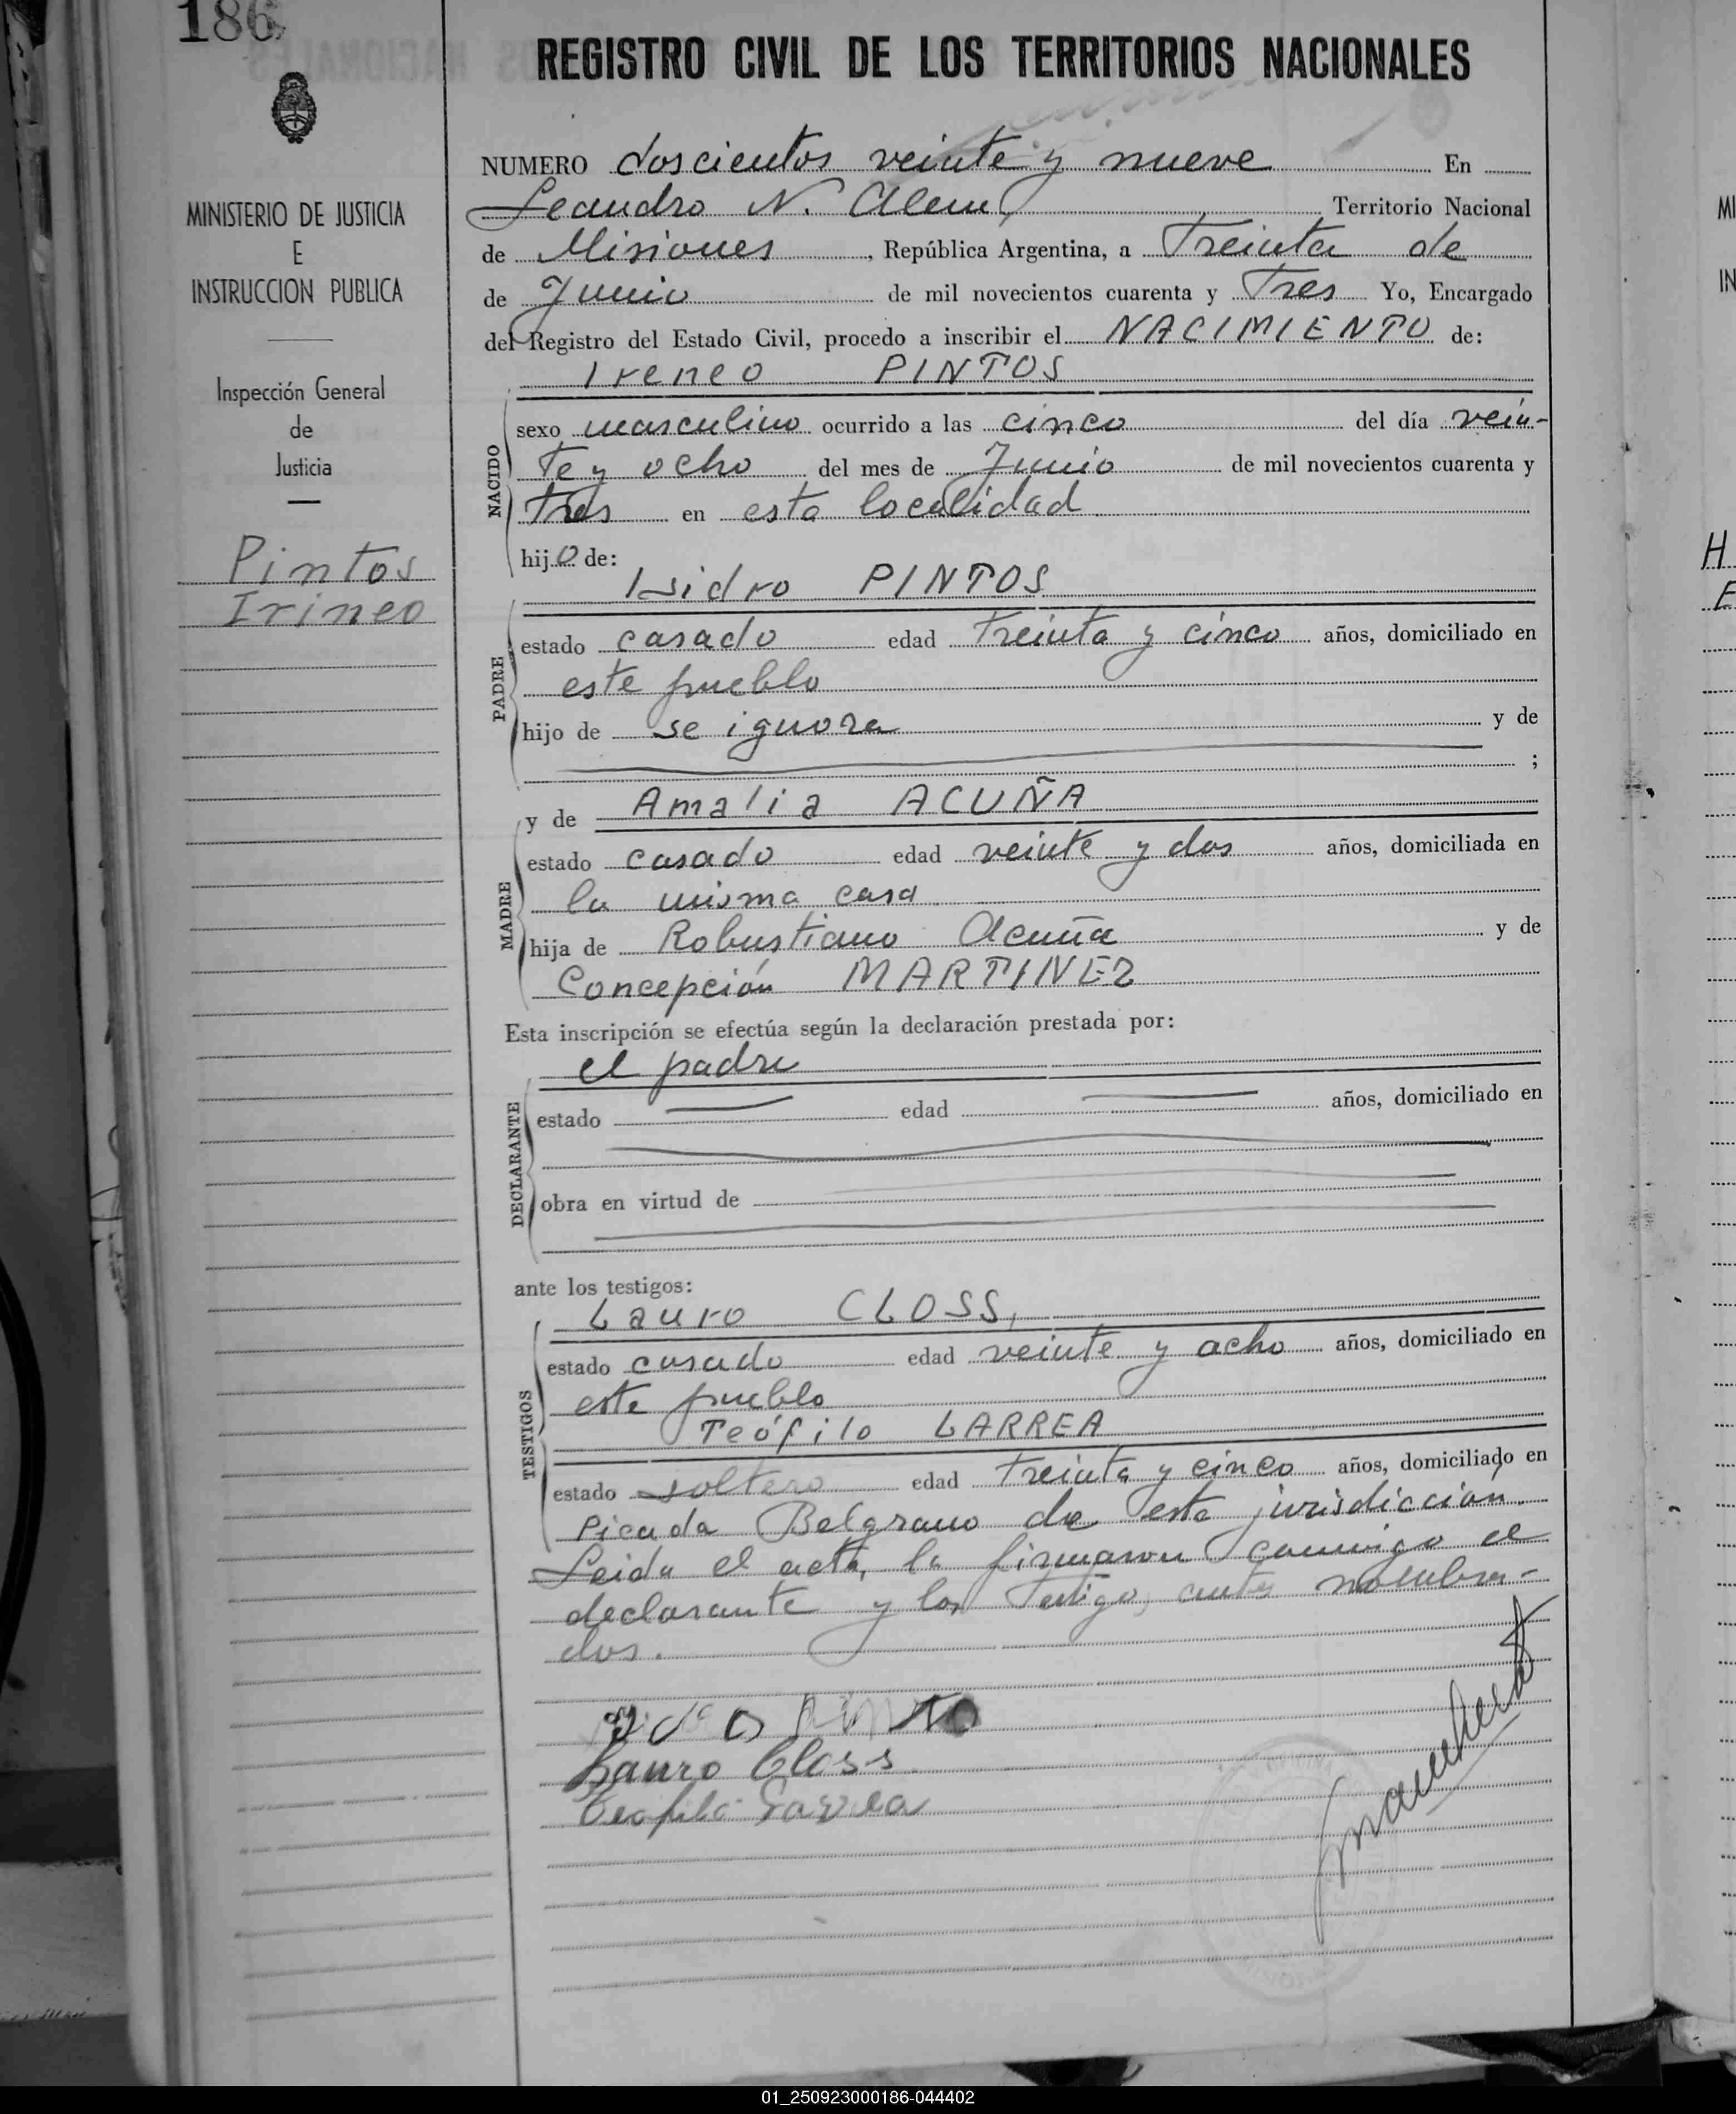 186
REGISTRO CIVIL DE LOS TERRITORIOS NACIONALES
MINISTERIO DE JUSTICIA
E
INSTRUCCION PUBLICA
Inspección General
de
Justicia
Pintos
Irineo
NUMERO doscientos veinte y nueve En
Leandro N. Alem Territorio Nacional
de Misiones, República Argentina, a Treinta de
de Junio de mil novecientos cuarenta y Tres Yo, Encargado
del Registro del Estado Civil, procedo a inscribir el NACIMIENTO de:
Ireneo PINTOS
NACIDO
sexo masculino ocurrido a las cinco del día vein-
te y ocho del mes de Junio de mil novecientos cuarenta y
tres en esta localidad
hijo de:
Isidro PINTOS
PADRE
estado casado edad treinta y cinco años, domiciliado en
este pueblo
hijo de se ignora y de
;
y de Amalia ACUÑA
MADRE
estado casado edad veinte y dos años, domiciliada en
la misma casa
hija de Robustiano Acuña y de
Concepción MARTINEZ
Esta inscripción se efectúa según la declaración prestada por:
el padre
DECLARANTE
estado edad años, domiciliado en
obra en virtud de
ante los testigos:
Lauro CLOSS,
TESTIGOS
estado casado edad veinte y ocho años, domiciliado en
este pueblo
Teófilo LARREA
estado soltero edad treinta y cinco años, domiciliado en
Picada Belgrano de esta jurisdicción.
Leida el acta, la firmaron conmigo el
declarante y los testigos antes nombra-
dos.
Lauro Closs
Teofilo Larrea
MI
IN
H
E
01_250923000186-044402